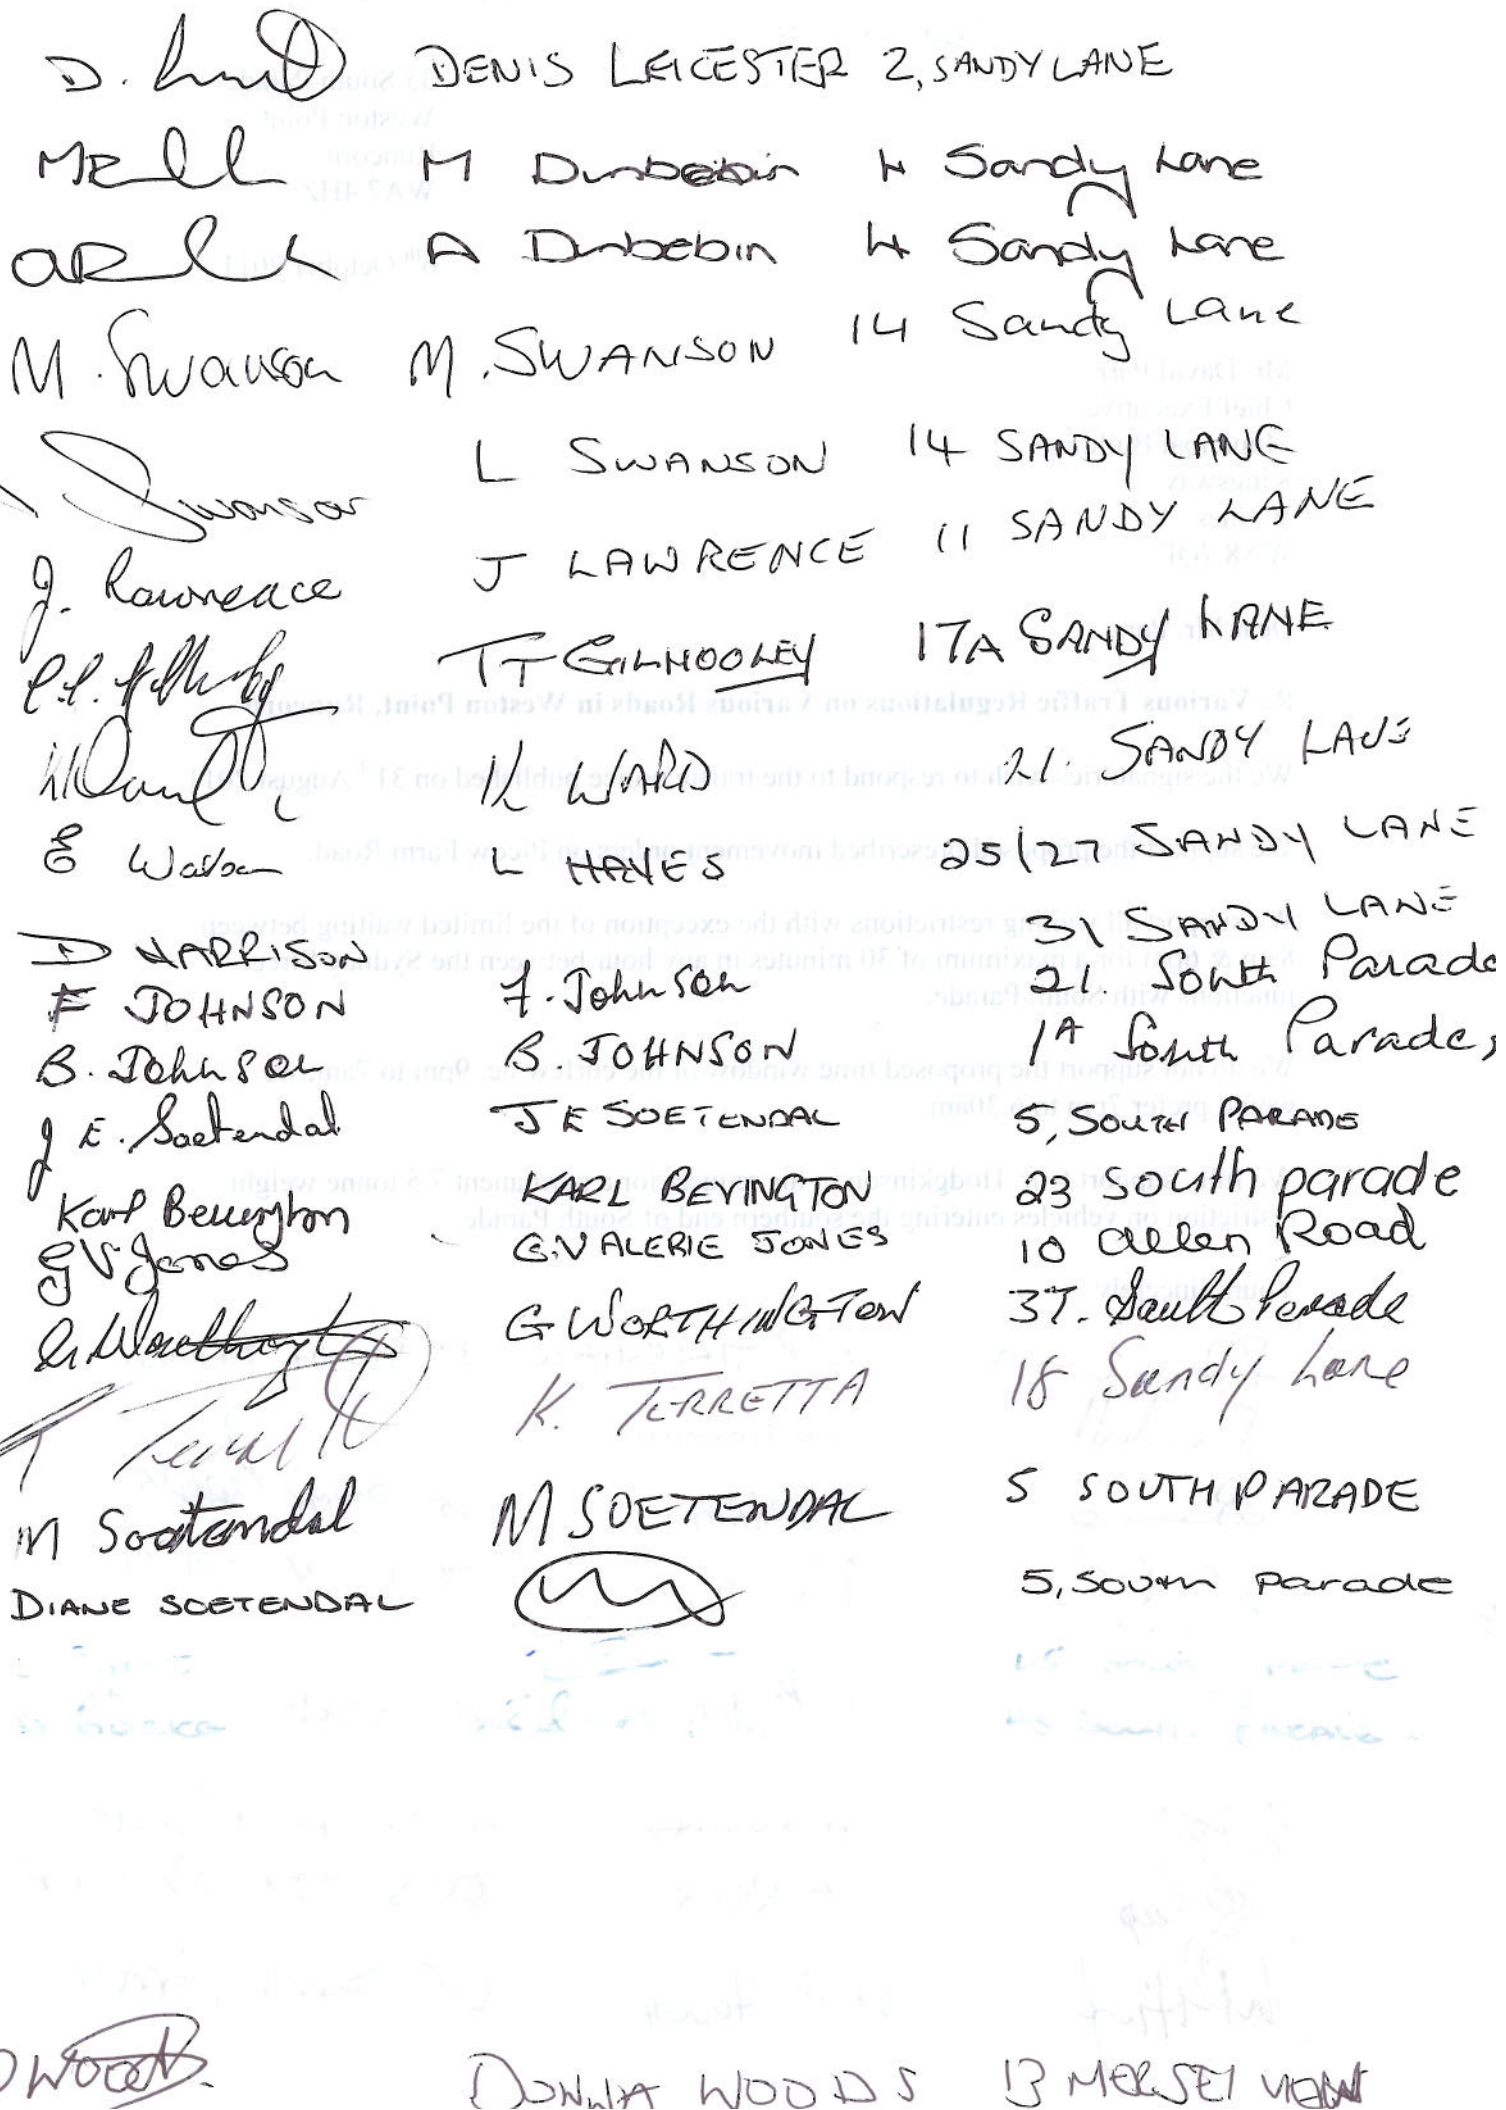 D. DENIS LEICESTER 2, SANDY LANE
M Dunbebin 4 Sandy Lane
A Dunbebin 4 Sandy Lane
M. Swanson M. SWANSON 14 Sandy Lane
Swanson L SWANSON 14 SANDY LANE
J. Lawrence J LAWRENCE 11 SANDY LANE
TT GILHOOLEY 17A SANDY LANE
K WARD 21. SANDY LANE
E Watson L HAYES 25/27 SANDY LANE
D HARRISON 31 SANDY LANE
F JOHNSON F. Johnson 21. South Parade
B. Johnson B. JOHNSON 1A South Parade,
J E. Soetendal J E SOETENDAL 5, SOUTH PARADE
Karl Bevington KARL BEVINGTON 23 South parade
G V Jones G.VALERIE JONES 10 Allen Road
G. Worthington G WORTHINGTON 37. South Parade
K. TERRETTA 18 Sandy Lane
M Soetendal M SOETENDAL 5 SOUTH PARADE
DIANE SOETENDAL 5, South parade
D Woods. DONNA WOODS 13 MERSEY VIEW